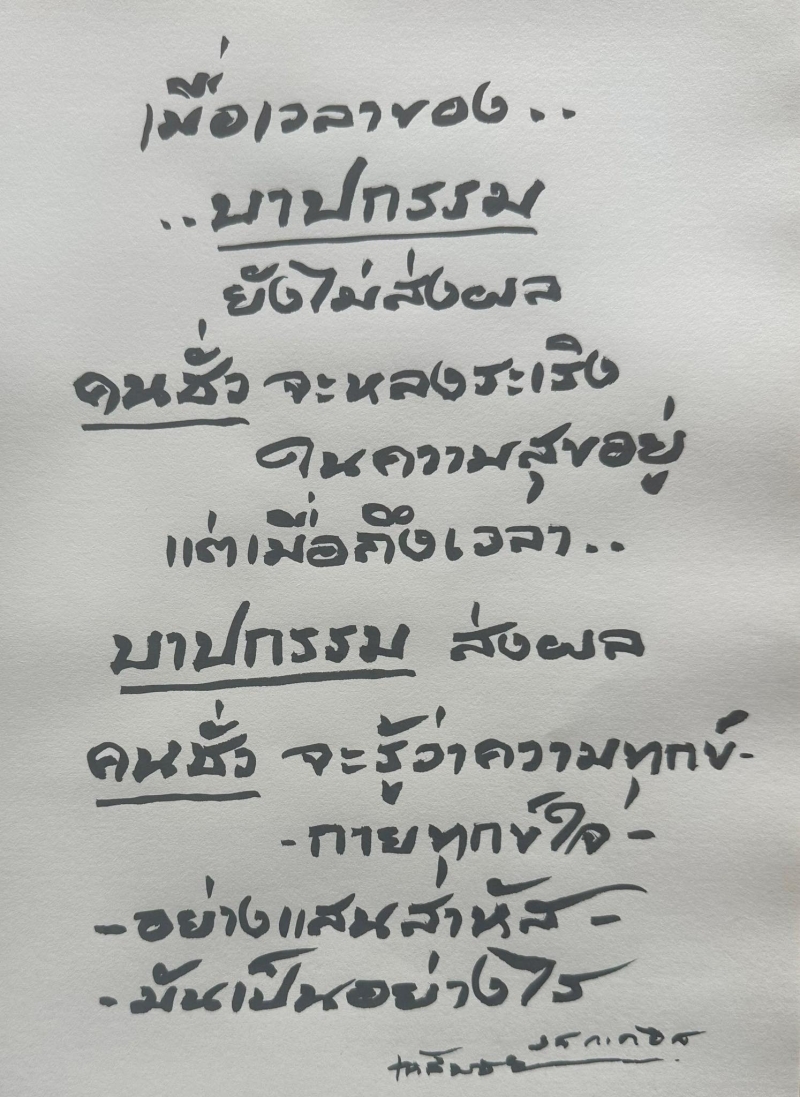 เมื่อเวลาของ..
..บาปกรรม
ยังไม่ส่งผล
คนชั่ว จะหลงระเริง
ในความสุขอยู่
แต่เมื่อถึงเวลา..
บาปกรรม ส่งผล
คนชั่ว จะรู้ว่าความทุกข์-
-กายทุกข์ใจ-
-อย่างแสนสาหัส-
-มันเป็นอย่างไร